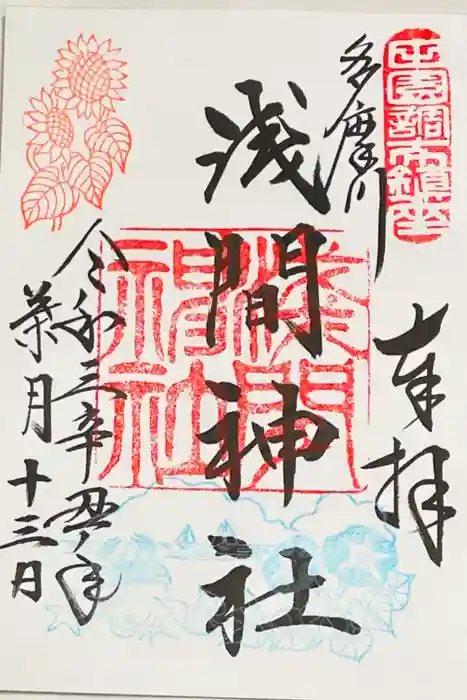 田園調布鎮座
奉拝
多摩川
浅間神社
浅間神社
令和三辛丑年
葉月十三日